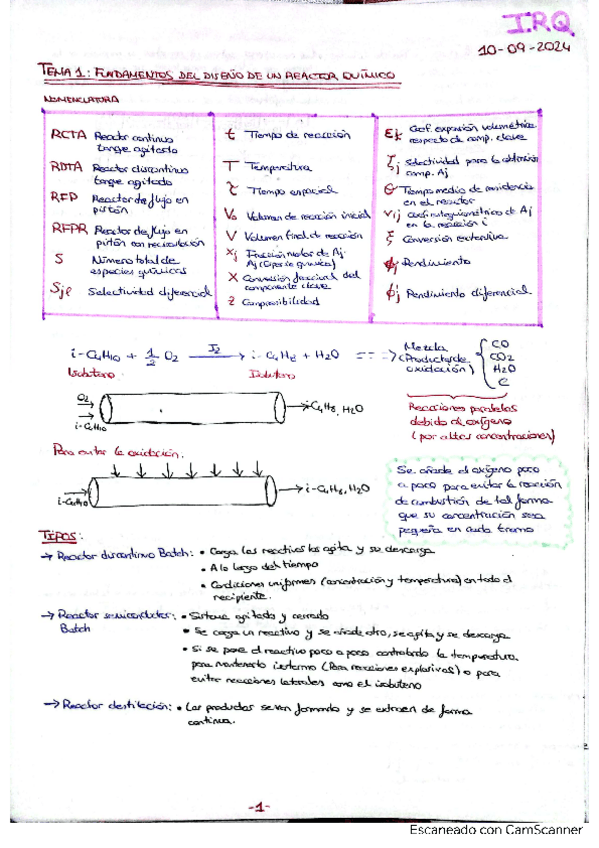 I.R.Q
10-09-2024
TEMA 1: FUNDAMENTOS DEL DISEÑO DE UN REACTOR QUÍMICO
NOMENCLATURA
RCTA Reactor continuo
tanque agitado
RDTA Reactor discontinuo
tanque agitado
RFP Reactor de flujo en
pistón
RFPR Reactor de flujo en
pistón con recirculación
S Número total de
especies químicas
Sjl Selectividad diferencial
t Tiempo de reacción
T Temperatura
τ Tiempo espacial
V₀ Volumen de reacción inicial
V Volumen final de reacción
xj Fracción molar de Aj
Aj (Especie química)
X Conversión fraccional del
componente clave
z Compresibilidad
Coef. expansión volumétrica
respecto de comp. clave
Selectividad para la obtención
comp. Aj
θ Tiempo medio de residencia
en el reactor
νij Coef. estequiométrico de Aj
en la reacción i
ξ Conversión extensiva
ϕj Rendimiento
ϕj Rendimiento diferencial
i-C₄H₁₀ + 1/2 O₂ I₂ → i-C₄H₈ + H₂O ===>
Mezcla
(Productos de
oxidación)
CO
CO₂
H₂O
C
Isobutano
Isobuteno
O₂
i-C₄H₁₀
→ iC₄H₈, H₂O
Reacciones paralelas
debido al oxígeno
(por altas concentraciones)
Para evitar la oxidación.
i-C₄H₁₀
→ i-C₄H₈, H₂O
Se añade el oxígeno poco
a poco para evitar la reacción
de combustión de tal forma
que su concentración sea
pequeña en cada tramo
TIPOS:
→ Reactor discontinuo Batch: • Carga los reactivos los agita y su descarga
• A lo largo del tiempo
• Condiciones uniformes (concentración y temperatura) en todo el
recipiente.
→ Reactor : • Sistema agitado y cerrado
Batch
• Se carga un reactivo y se añade otro, se agita y se descarga
• Si se pone el reactivo poco a poco controlando la temperatura
para mantenerlo isotermo (Para reacciones explosivas) o para
evitar reacciones laterales como el isobuteno
→ Reactor destilación: • Los productos se van formando y se extraen de forma
continua.
-1-
Escaneado con CamScanner